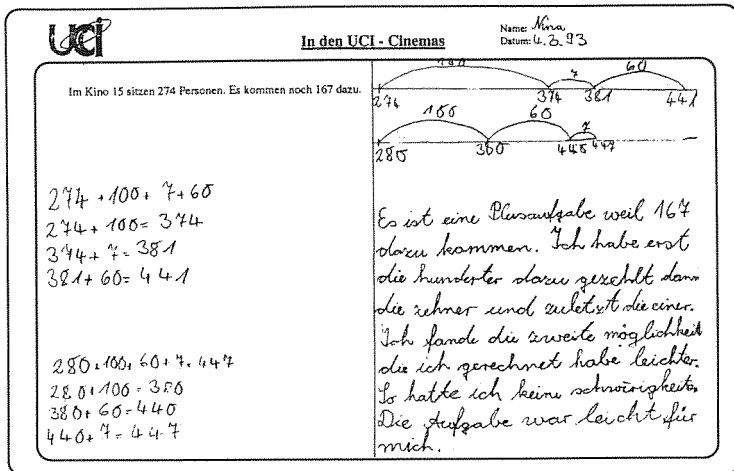 UCI
In den UCI - Cinemas
Name: Nina
Datum: 4.3.93
Im Kino 15 sitzen 274 Personen. Es kommen noch 167 dazu.
100 7 60
274 374 381 441
100 60 7
280 380 440 447
274 + 100 + 7 + 60
274 + 100 = 374
374 + 7 = 381
381 + 60 = 441
280 + 100 + 60 + 7 = 447
280 + 100 = 380
380 + 60 = 440
440 + 7 = 447
Es ist eine Plusaufgabe weil 167
dazu kommen. Ich habe erst
die hunderter dazu gezehlt dann
die zehner und zuletzt die einer.
Ich fande die zweite möglichkeit
die ich gerechnet habe leichter.
So hatte ich keine schwirigkeiten
Die Aufgabe war leicht für
mich.